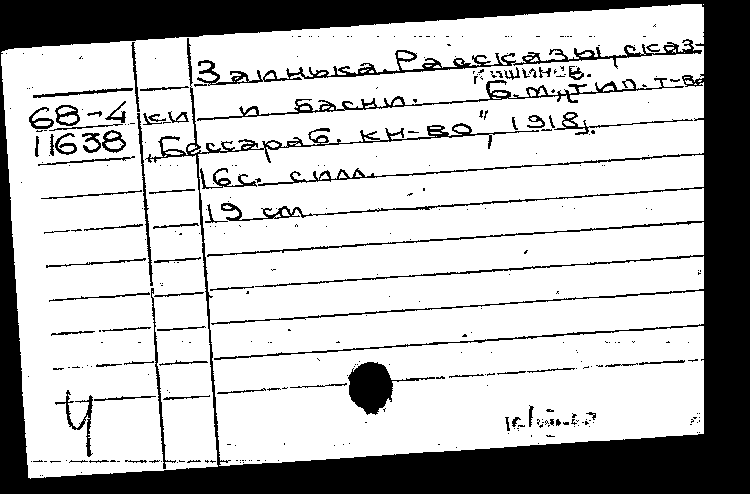 Заинька. Рассказы, сказ-
Кишинев.
68-4 ки и басни. Б.м., тип. т-ва
11638 „Бессараб. кн-во", 1918.
16 с. с илл.
19 см
Ч